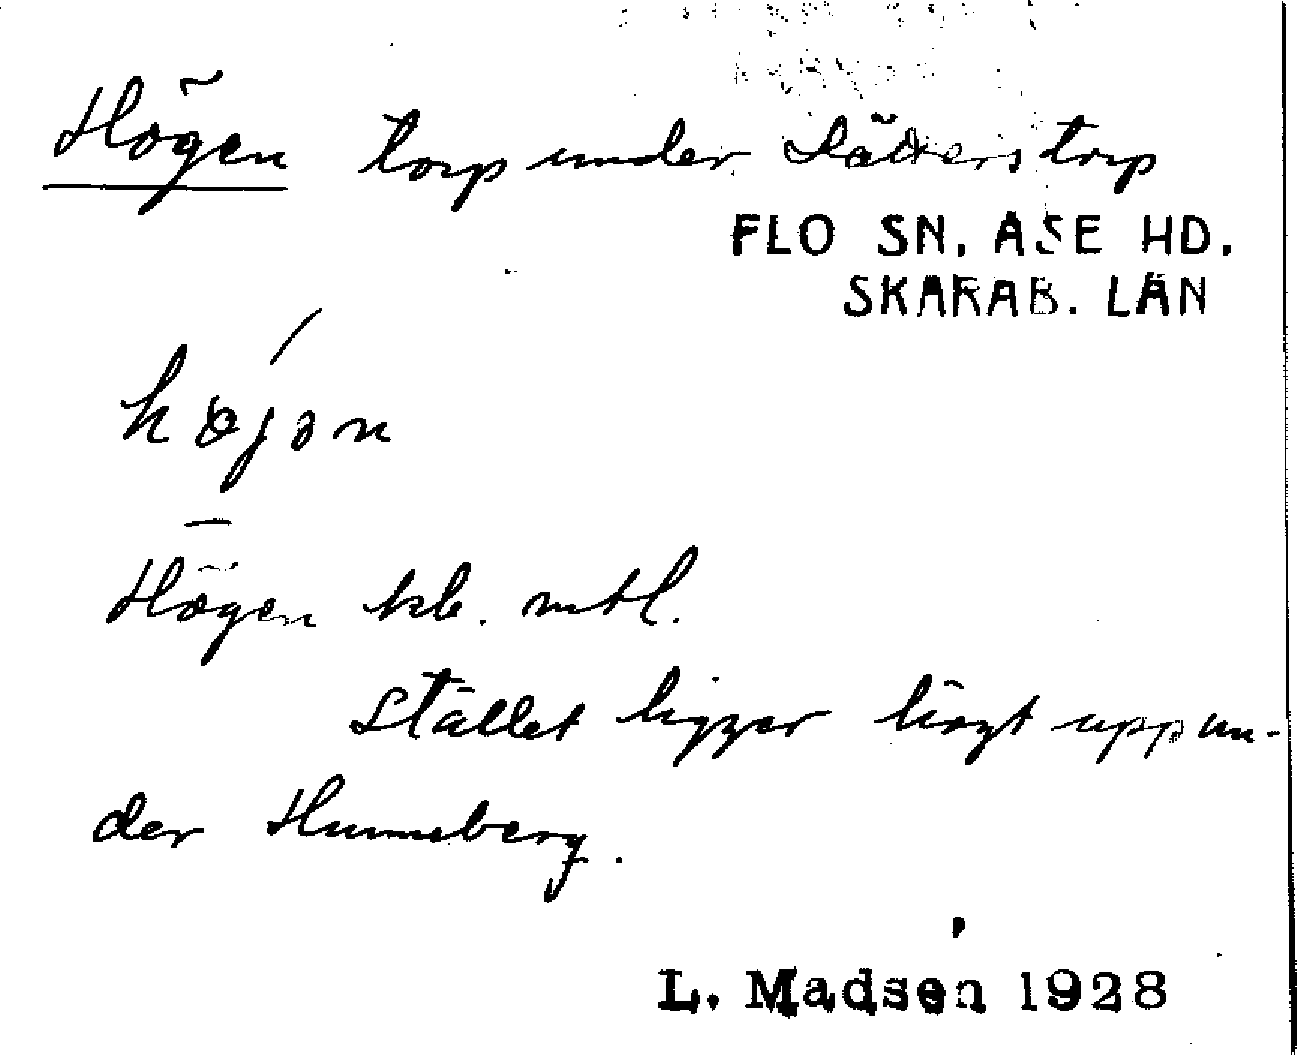 Högen torp under Sätterstorp
FLO SN. ÅSE HD.
SKARAB. LÄN
højən
Högen kb. mtl.
Stället ligger högt uppun-
der Hunneberg.
L. Madsen 1928